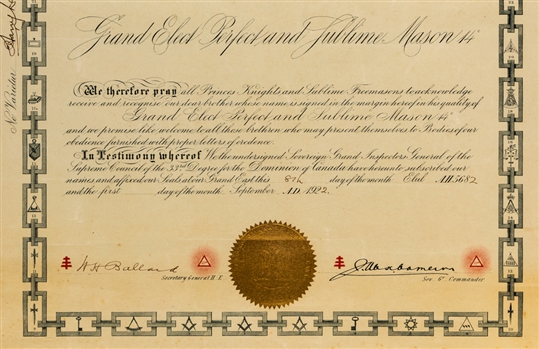 Grand Elect Perfect and Sublime Mason 14
We therefore pray all Princes Knights and Sublime Freemasons, to acknowledge
receive and recognise our dear brother whose name is signed in the margin hereof in his quality of
Grand Elect Perfect and Sublime Mason 14
and we promise like welcome to all those brethren who may present themselves to Bodies of our
obedience furnished with proper letters of credence.
In Testimony whereof We the undersigned Sovereign Grand Inspectors General of the
Supreme Council of the 33rd Degree for the Dominion of Canada have hereunto subscribed our
names and affixed our Seals at our Grand East this 8th day of the month Elul A.H. 5682
and the first day of the month September A.D. 1922.
W H Ballard
Secretary General H. E.
Cameron
Sov. Gd Commander
Ne Varietur